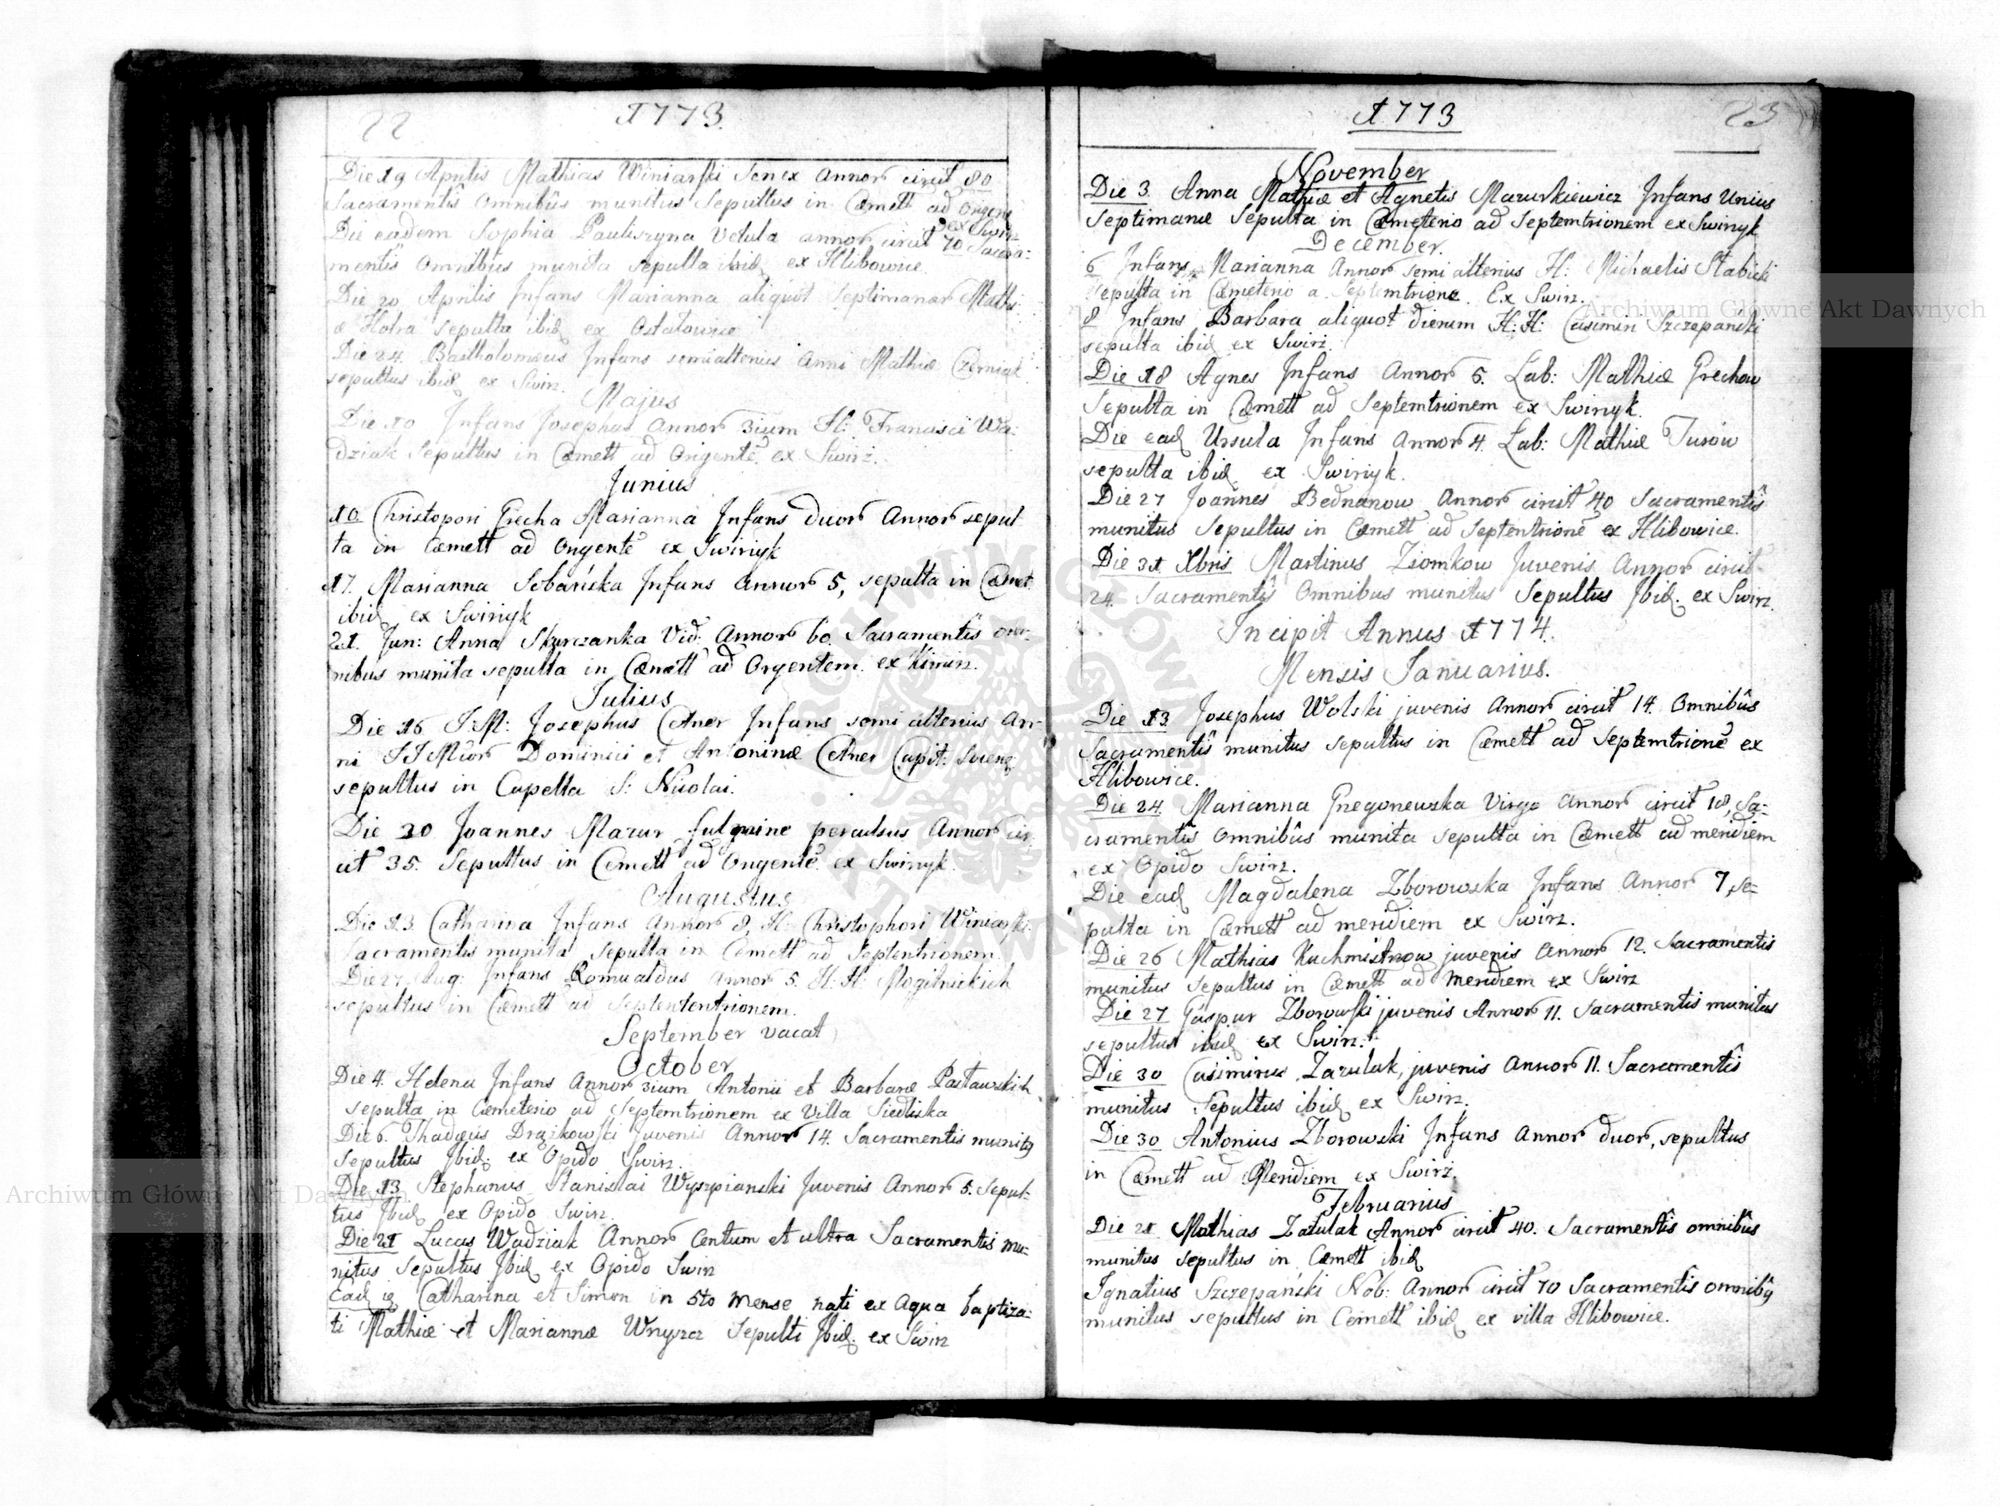 22
1773.
Die 19 Aprilis Mathias Winiarski Senex Annor circit 80
Sacramentis Omnibus munitus Sepultus in Cœmett ad Orgent
ex Swirz
Die eadem Sophia Pauliszyna Vetula annor circit 70 Sacra-
mentis Omnibus munita sepulta ibid ex Hlibowice.
Die 20 Aprilis Infans Marianna aliquot septimanar Mathi
æ Hotra sepulta ibid ex Ostalowice
Die 24. Bartholomæus Infans semialterius Anni Mathiæ Czerniak
sepultus ibid ex Swirz.
Majus
Die 10 Infans Josephus Annor 3ium H: Francisci Wa-
dziak Sepultus in Cœmett ad Orgentē ex Swirz.
Junius
10 Christopori Grecha Marianna Infans duor Annor sepul-
ta in Cœmett ad Orgentē ex Swirzyk
17. Marianna Sobańska Infans Annor 5, sepulta in Cœmet
ibid ex Swirzyk
21. Jun: Anna Skurczanka Vid: Annor 60 Sacramentis om-
nibus munita sepulta in Cœmett ad Orgentem ex Kimirz.
Julius
Die 16 J.M: Josephus Cetner Infans semi alterius An-
ni JJMuor Dominici et Antoninæ Cetner Capit:
sepultus in Capella S: Nicolai.
Die 20 Joannes Mazur fulmine perculsus Annor cir-
cit 35. Sepultus in Cœmett ad Orgentē ex Swirzyk.
Augustus
Die 13 Catharina Infans Annor 8, H: Christophori Winiarski
sacramentis munita sepulta in Cœmett ad Septentrionem.
Die 27 Aug: Infans Romualdus Annor 5. H: H: Mogilnickich
sepultus in Cœmett ad Septententrionem.
September vacat
October
Die 4. Helena Infans Annor 3ium Antonii et Barbaræ Pastawskich
sepulta in Cœmeterio ad Septemtrionem ex Villa Siedliska
Die 6. Thadæus Drążkowski Juvenis Annor 14. Sacramentis munitq
Sepultus Ibid: ex Opido Swirz.
Die 13 Stephanus Stanislai Wyszpianski Juvenis Annor 5. Sepul-
tus Ibid ex Opido Swirz.
Die 21 Lucas Wadziak Annor Centum et ultra Sacramentis mu-
nitus Sepultus Ibid ex Opido Swirz
Ead Catharina et Simon in 5to Mense nati ex Aqua baptiza-
ti Mathiæ et Mariannæ Wnyscz Sepulti Ibid. ex Swirz
1773
23
November
Die 3 Anna Mathiæ et Agnetis Mazurkiewicz Infans Unius
Septimanæ Sepulta in Cœmeterio ad Septemtrionem ex Swirzyk
December.
6 Infans Marianna Annor semi alterius H: Michaelis Stabicki
sepulta in Cœmeterio a Septemtrione. Ex Swirz.
8 Infans Barbara aliquot dierum H: H: Casimiri Szczepanski
sepulta ibid ex Swirz.
Die 18 Agnes Infans Annor 5. Lab: Mathiæ Grechow
Sepulta in Cœmett ad Septemtrionem ex Swirzyk.
Die ead Ursula Infans Annor 4. Lab: Mathiæ Turow
sepulta ibid ex Swirzyk.
Die 27 Joannes Bednarow Annor circit 40 Sacramentis
munitus Sepultus in Cœmett ad Septentrionē ex Hlibowice.
Die 31 Xbris Martinus Ziomkow Juvenis Annor circit
24. Sacramentis Omnibus munitus Sepultus Ibid. ex Swirz.
Incipit Annus 1774.
Mensis Januarius.
Die 13 Josephus Wolski juvenis Annor circit 14. Omnibus
Sacramentis munitus sepultus in Cœmett ad Septemtrionē ex
Hlibowice.
Die 24 Marianna Gregorewska Virgo Annor circit 18, Sa-
cramentis Omnibus munita sepulta in Cœmett ad meridiem
ex Opido Swirz.
Die ead Magdalena Zborowska Infans Annor 7, se-
pulta in Cœmett ad meridiem ex Swirz.
Die 26 Mathias Kuchmistrzow juvenis Annor 12. Sacramentis
munitus Sepultus in Cœmett ad Meridiem ex Swirz
Die 27 Gaspar Zborowski juvenis Annor 11. Sacramentis munitus
sepultus ibid ex Swirz.
Die 30 Casimirus Zazulak, juvenis Annor 11. Sacramentis
munitus Sepultus ibid ex Swirz.
Die 30 Antonius Zborowski Infans Annor duor, sepultus
in Cœmett ad Meridiem ex Swirz.
Februarius
Die 21 Mathias Zatulak Annor circit 40. Sacramentis omnibus
munitus sepultus in Cœmett ibid
Ignatius Szczepański Nob: Annor circit 70 Sacramentis omnibq
munitus sepultus in Cemett ibid ex villa Hlibowice.
Archiwum Główne Akt Dawnych
Archiwum Główne Akt Dawnych